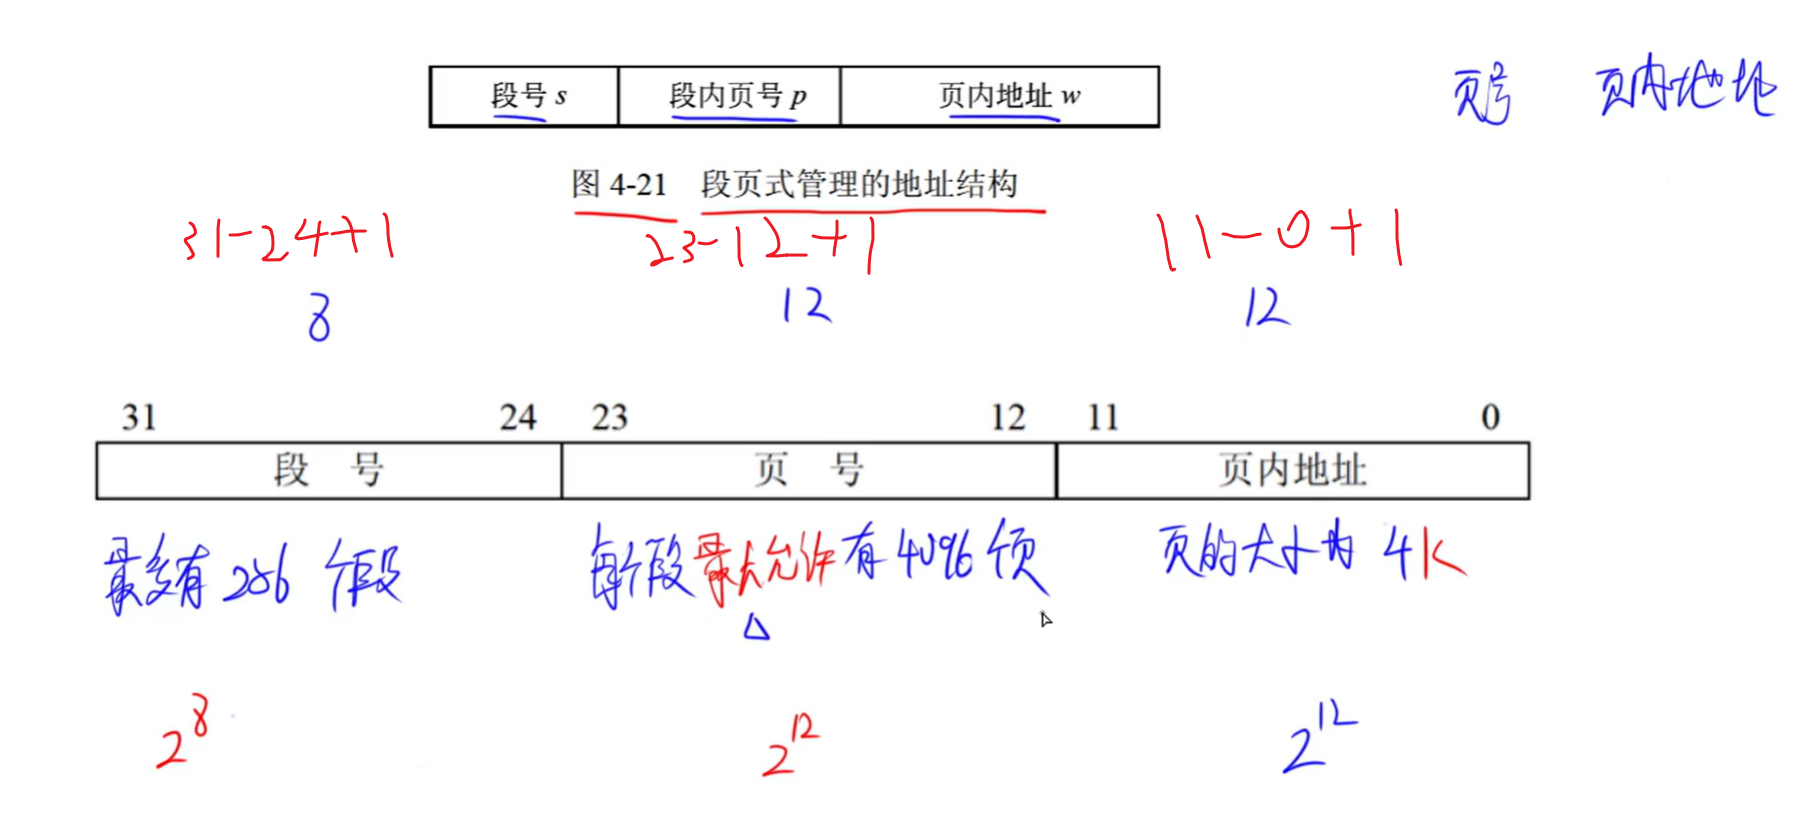 段号 s 段内页号 p 页内地址 w
页号 页内地址
图 4-21 段页式管理的地址结构
31-24+1 23-12+1 11-0+1
8 12 12
31 24 23 12 11 0
段 号 页 号 页内地址
最多有 256 个段 每个段最大允许有 4096 个页 页的大小为 4K
2^8 2^12 2^12